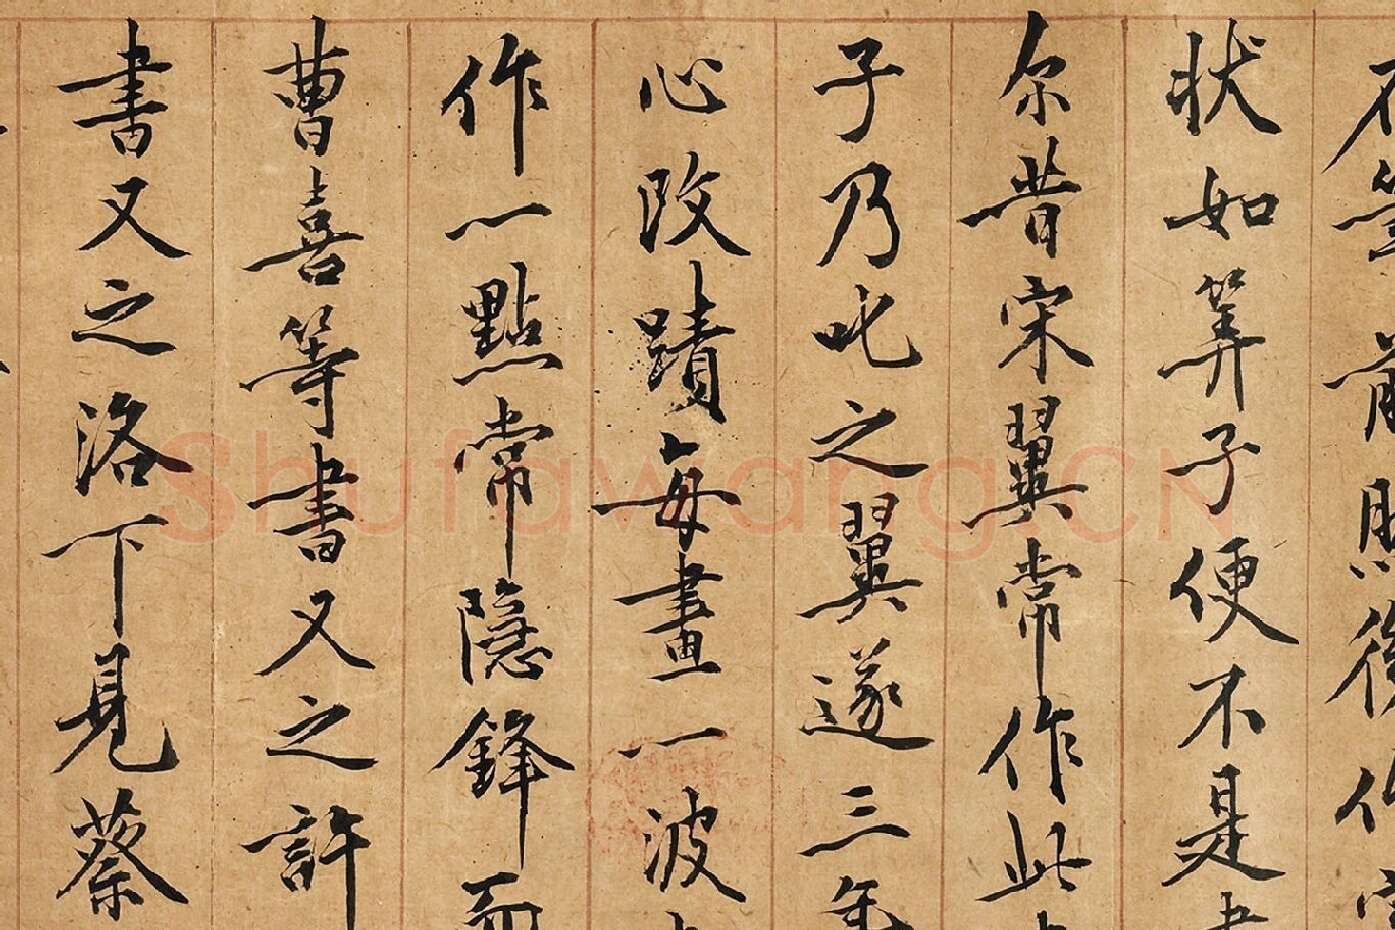 前後
狀如筭子便不是
尔昔宋翼常作此
子乃叱之翼遂三年
心改蹟每畫一波
作一點常隱鋒而
曹喜等書又之許
書又之洛下見蔡
Shufawang.CN